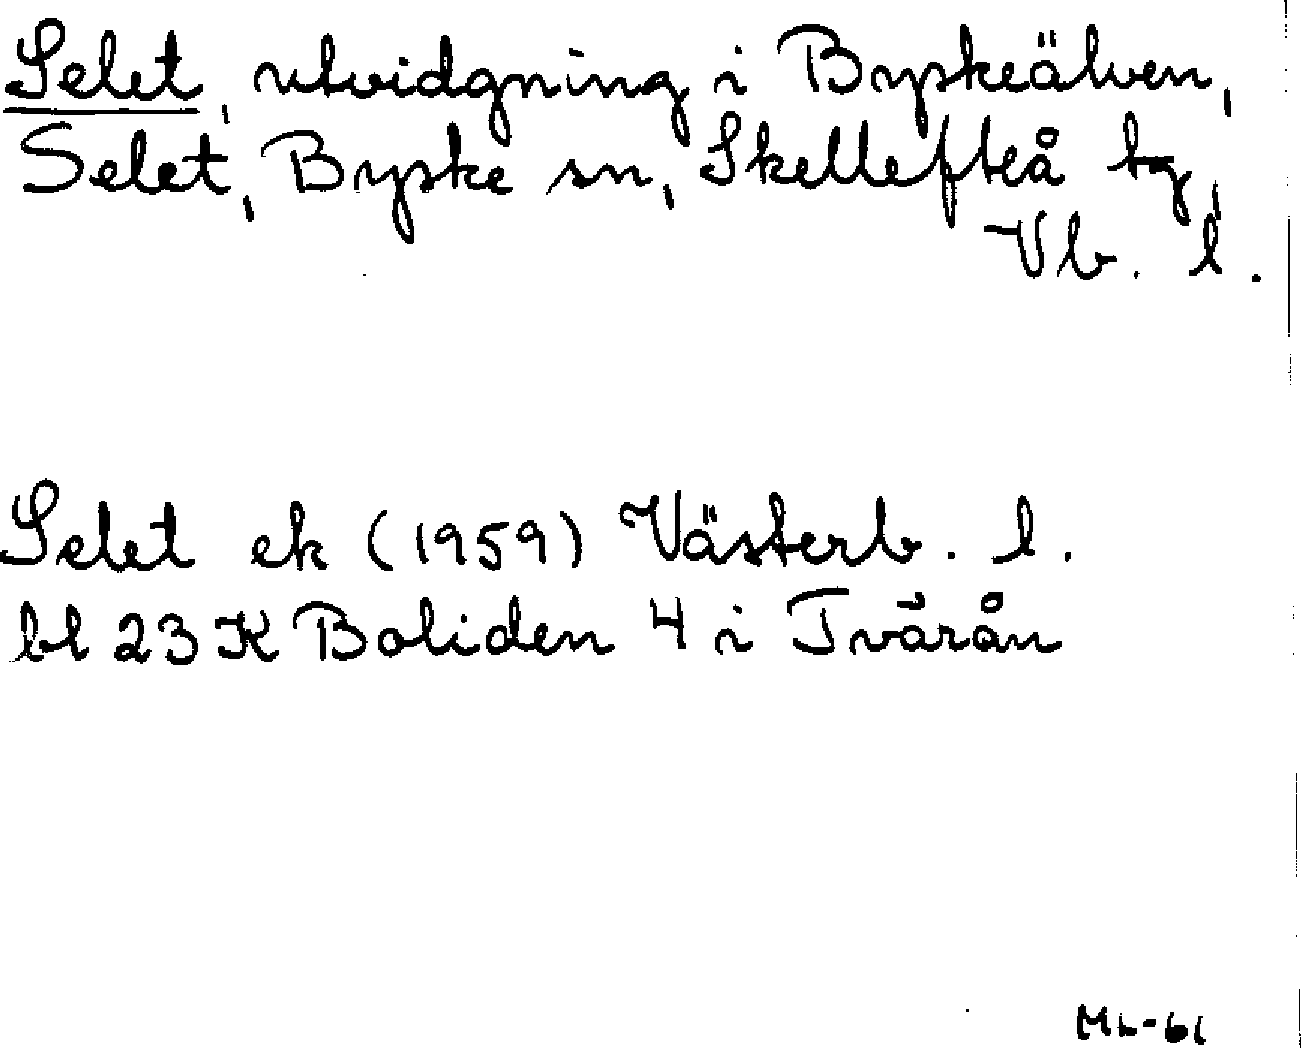 Selet, utvidgning i Byskeälven,
Selet, Byske sn, Skellefteå tg,
Vb. l.
Selet ek (1959) Västerb. l.
bl 23 K Boliden 4 i Tvärån